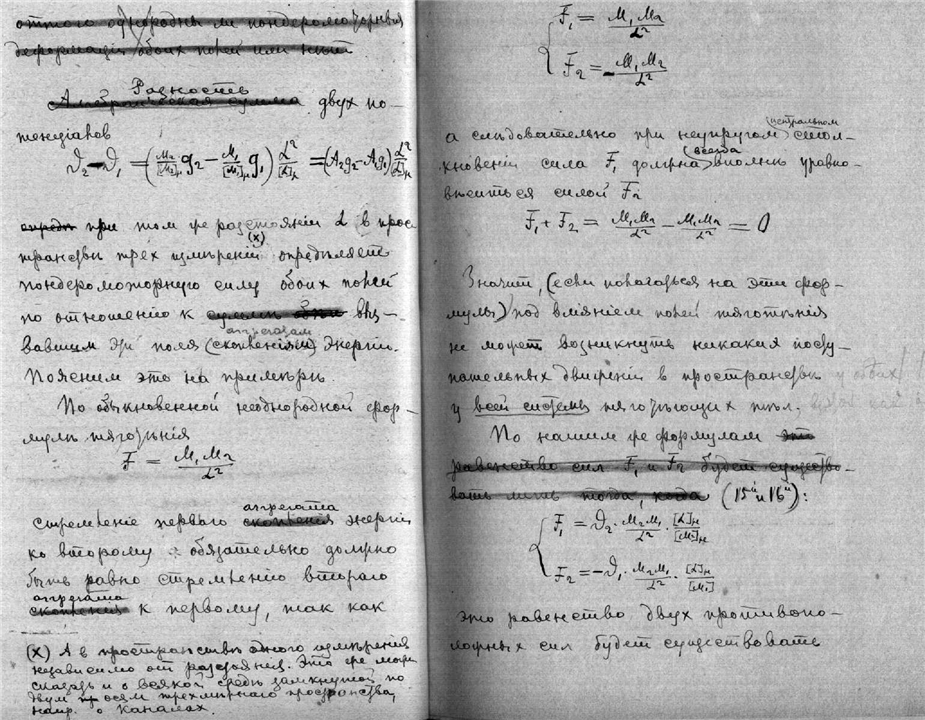 этого однородны ли пондеромоторныя
деформаціи обоих полей или нет
Разность
Алгебраическая сумма двух по-
тенціалов
ϑ₂ - ϑ₁ = (M₂/[M]ₙ g₂ - M₁/[M]ₙ g₁) L²/[L]ₙ = (A₂g₂ - A₁g₁) L²/[L]ₙ
при том же разстояніи L в прос
(x)
транствѣ трех измѣреній опредѣляет
пондеромоторную силу обоих полей
по отношенію к выз-
агрегатам
вавшим эти поля (скопленіям) энергіи.
Поясним это на примѣрѣ.
По обыкновенной неоднородной фор-
мулѣ тяготѣнія
F = M₁M₂/L²
агрегата
стремленіе перваго скопленія энергіи
ко второму обязательно должно
быть равно стремленію втораго
агрегата
скопленія к первому, так как
(x) А в пространствѣ одного измѣренія
независимо от разстоянія. Это же можно
сказать и о всякой средѣ замкнутой по
двум осям трехмѣрнаго пространства,
напр. о каналах.
F₁ = M₁M₂/L²
F₂ = -M₁M₂/L²
центральном
а слѣдовательно при неупругом стол-
всегда
кновеніи сила F₁ должна вполнѣ уравно-
вѣситься силой F₂
F₁ + F₂ = M₁M₂/L² - M₁M₂/L² = 0
Значит, (если полагаться на эти фор-
мулы) под вліянием полей тяготѣнія
не может возникнуть никакия посту-
пательных движеній в пространствѣ
у всей системы тяготѣющих тѣл.
По нашим же формулам это
равенство сил F₁ и F₂ будет существо-
вать лишь тогда, когда (15ᵃ и 16ᵃ):
F₁ = ϑ₂ · M₂M₁/L² · [L]ₙ/[M]ₙ
F₂ = -ϑ₁ · M₂M₁/L² · [L]ₙ/[M]
это равенство двух противопо-
ложных сил будет существовать